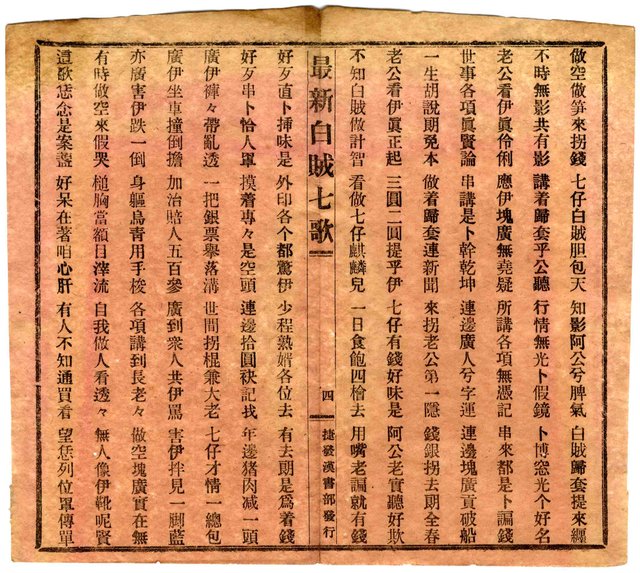 做空做笋來拐錢 七仔白賊胆包天 知影阿公兮脾氣 白賊歸套提來纏
不時無影共有影 講着歸套乎公聽 行情無光卜假鏡 卜博窓光个好名
老公看伊眞伶俐 應伊塊廣無堯疑 所講各項無憑記 串來都是卜諞錢
世事各項眞賢論 串講是卜幹乾坤 連邊廣人兮字運 連邊塊廣貢破船
一生胡說期免本 做着歸套連新聞 來拐老公第一隱 錢銀拐去期全春
老公看伊眞正起 三圓二圓提乎伊 七仔有錢好味是 阿公老實聽好欺
不知白賊做計智 看做七仔麒麟兒 一日食飽四檜去 用嘴老諞就有錢
最新白賊七歌 四 捷發漢書部發行
好歹直卜揷味是 外印各个都驚伊 少程熟婿各位去 有去期是爲着錢
好歹串卜恰人單 摸着專々是空頭 連邊拾圓袂記找 年邊猪肉减一頭
廣伊褲々帶亂透 一把銀票舉落溝 世間拐棍兼大老 七仔才情一總包
廣伊坐車撞倒擔 加治賠人五百參 廣到衆人共伊罵 害伊拌見一脚藍
亦廣害伊跌一倒 身軀烏青用手梭 各項講到長老々 做空塊廣實在無
有時做空來假哭 槌胸當額目滓流 自我做人看透々 無人像伊靴呢賢
這歌恁念是案盞 好呆在著咱心肝 有人不知通買看 望恁列位單傳單